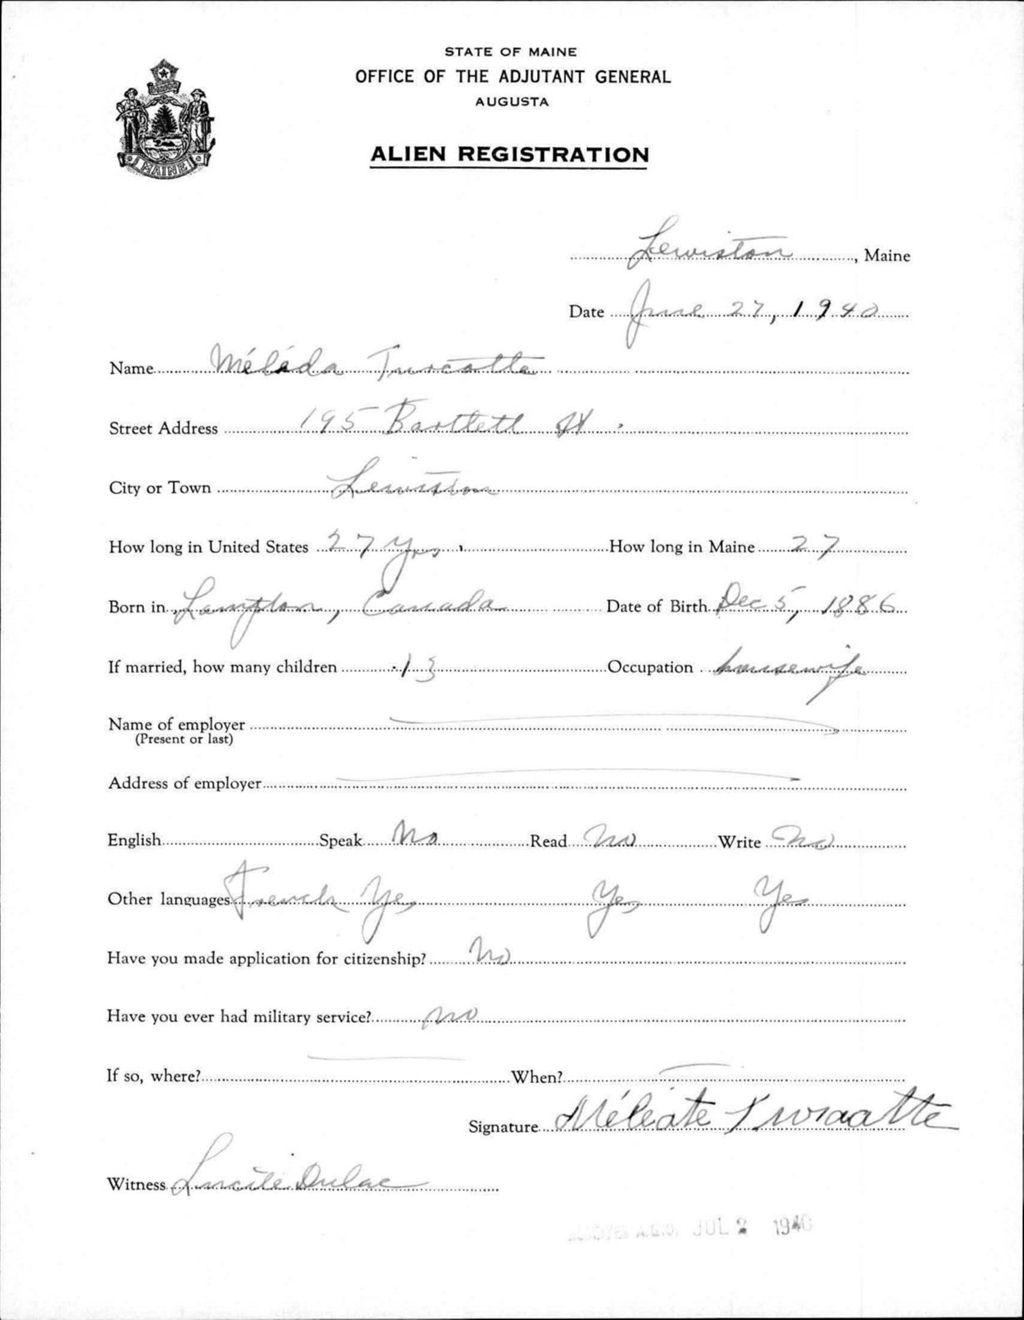 STATE OF MAINE
OFFICE OF THE ADJUTANT GENERAL
AUGUSTA
MAINE
ALIEN REGISTRATION
Lewiston, Maine
Date June 27, 1940
Name Méléda Turcotte
Street Address 195 Bartlett St.
City or Town Lewiston
How long in United States 27 yrs. How long in Maine 27
Born in Lampton, Canada Date of Birth Dec 5, 1886
If married, how many children 13 Occupation housewife
Name of employer
(Present or last)
Address of employer
English Speak No Read No Write No
Other languages French Yes Yes Yes
Have you made application for citizenship? No
Have you ever had military service? no
If so, where? When?
Signature
Witness Lucile Dulac
A.G.O. JUL 2 1940